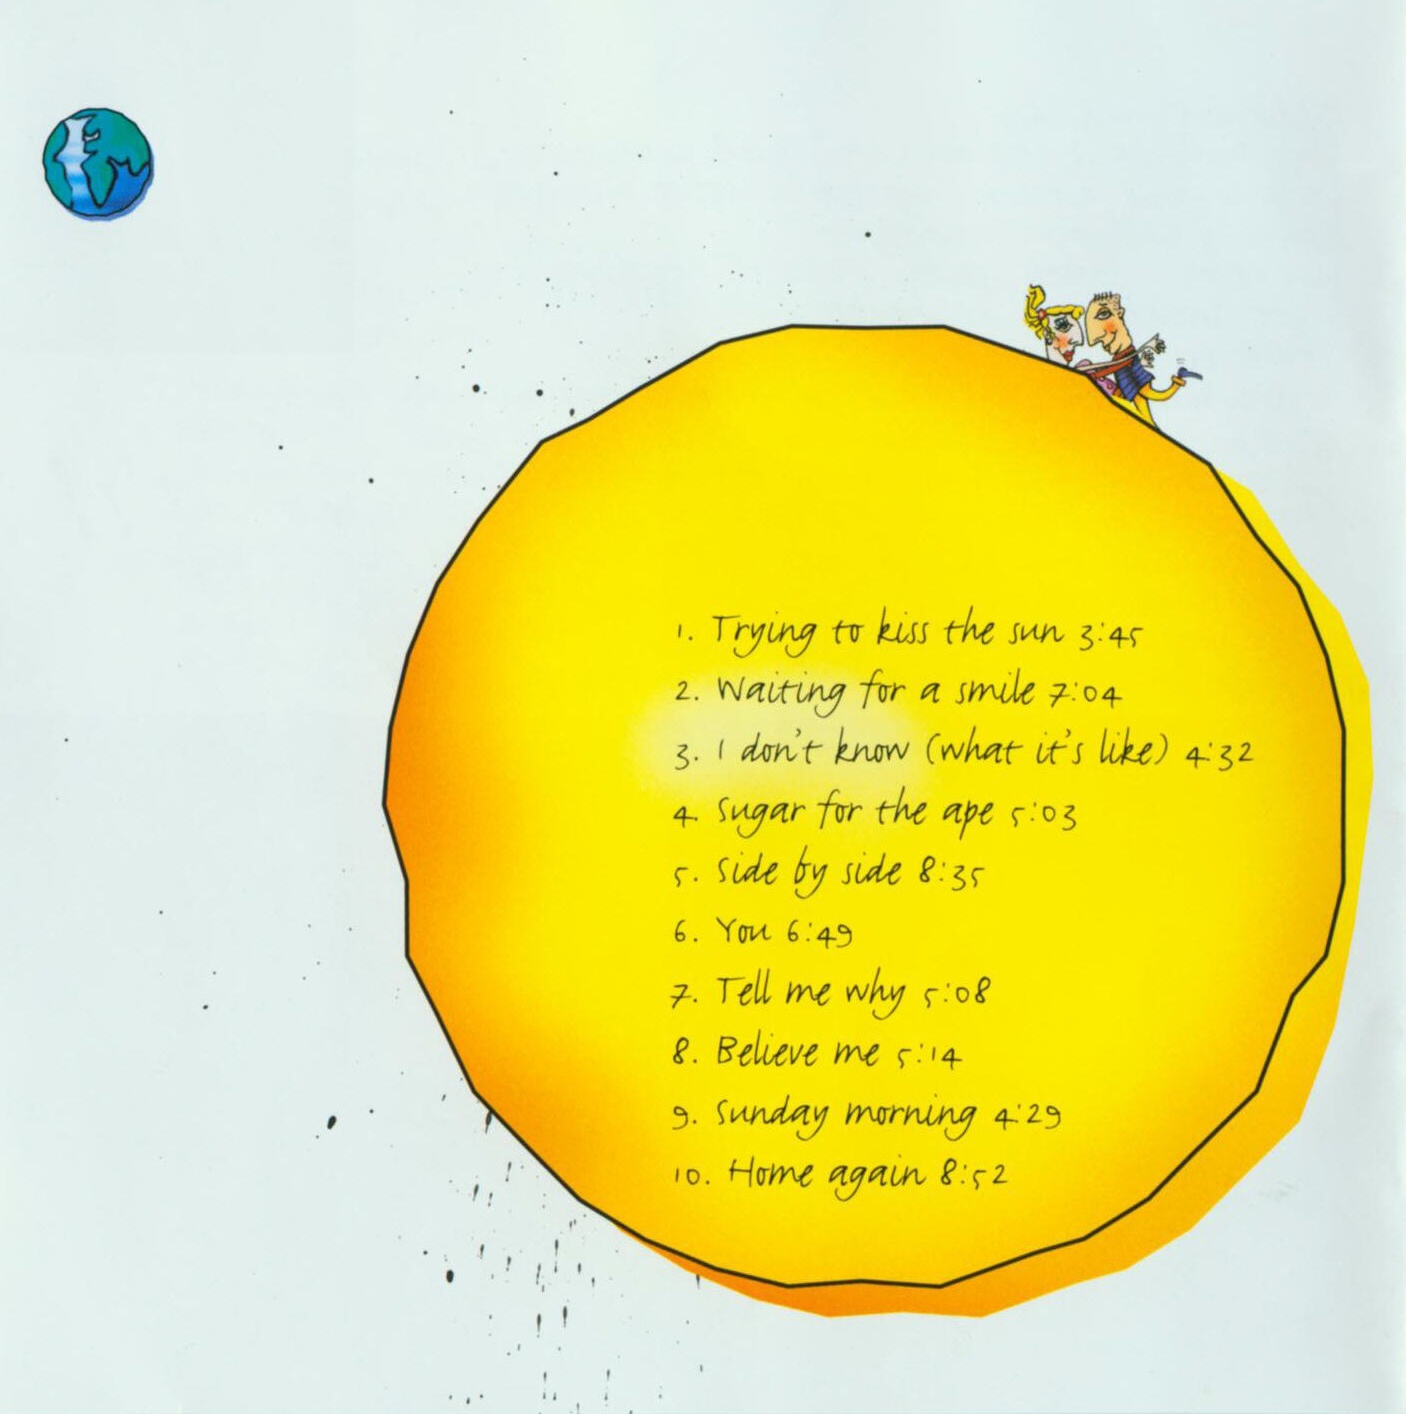 1. Trying to kiss the sun 3:45
2. Waiting for a smile 7:04
3. I don't know (what it's like) 4:32
4. Sugar for the ape 5:03
5. Side by side 8:35
6. You 6:49
7. Tell me why 5:08
8. Believe me 5:14
9. Sunday morning 4:29
10. Home again 8:52